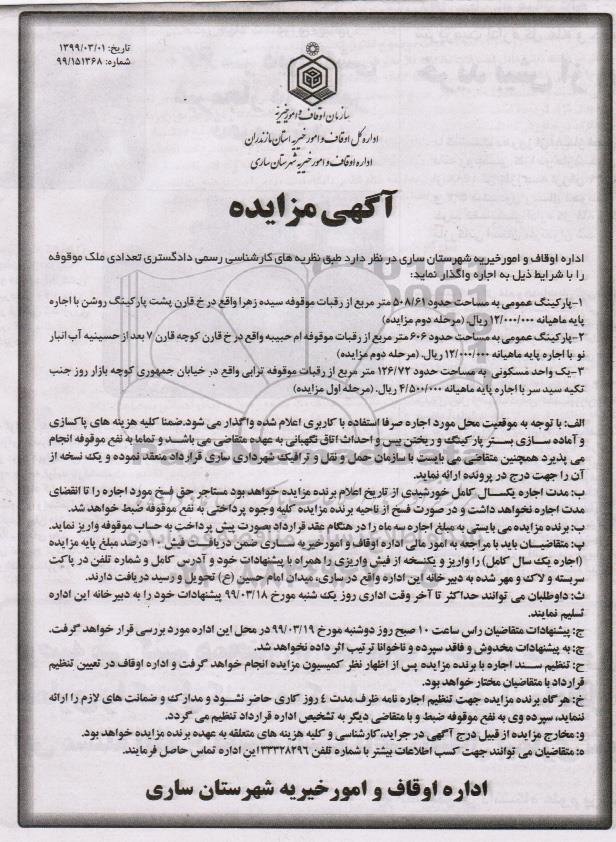 تاریخ: ۱۳۹۹/۰۳/۰۱
شماره: ۹۹/۱۵۱۳۶۸
سازمان اوقاف و امور خیریه
اداره کل اوقاف و امور خیریه استان مازندران
اداره اوقاف و امور خیریه شهرستان ساری
آگهی مزایده
اداره اوقاف و امور خیریه شهرستان ساری در نظر دارد طبق نظریه های کارشناسی رسمی دادگستری تعدادی ملک موقوفه
را با شرایط ذیل به اجاره واگذار نماید:
۱-پارکینگ عمومی به مساحت حدود ۵۰۸/۶۱ متر مربع از رقبات موقوفه سیده زهرا واقع در خ قارن پشت پارکینگ روشن با اجاره
پایه ماهیانه ۱۲/۰۰۰/۰۰۰ ریال. (مرحله دوم مزایده)
۲-پارکینگ عمومی به مساحت حدود ۶۰۶ متر مربع از رقبات موقوفه ام حبیبه واقع در خ قارن کوچه قارن ۷ بعد از حسینیه آب انبار
نو با اجاره پایه ماهیانه ۱۲/۰۰۰/۰۰۰ ریال. (مرحله دوم مزایده)
۳-یک واحد مسکونی به مساحت حدود ۱۲۶/۷۲ متر مربع از رقبات موقوفه ترابی واقع در خیابان جمهوری کوچه بازار روز جنب
تکیه سید سر با اجاره پایه ماهیانه ۴/۵۰۰/۰۰۰ ریال. (مرحله اول مزایده)
الف: با توجه به موقعیت محل مورد اجاره صرفا استفاده با کاربری اعلام شده واگذار می شود.ضمنا کلیه هزینه های پاکسازی
و آماده سازی بستر پارکینگ و ریختن بیس و احداث اتاق نگهبانی به عهده متقاضی می باشد و تماما به نفع موقوفه انجام
می پذیرد همچنین متقاضی می بایست با سازمان حمل و نقل و ترافیک شهرداری ساری قرارداد منعقد نموده و یک نسخه از
آن را جهت درج در پرونده ارائه نماید.
ب: مدت اجاره یکسال کامل خورشیدی از تاریخ اعلام برنده مزایده خواهد بود مستاجر حق فسخ مورد اجاره را تا انقضای
مدت اجاره نخواهد داشت و در صورت فسخ از ناحیه برنده مزایده کلیه وجوه پرداختی به نفع موقوفه ضبط خواهد شد.
ب: برنده مزایده می بایستی به مبلغ اجاره سه ماه را در هنگام عقد قرارداد بصورت پیش پرداخت به حساب موقوفه واریز نماید.
پ: متقاضیان باید با مراجعه به امور مالی اداره اوقاف و امور خیریه ساری ضمن دریافت فیش ۱۰ درصد مبلغ پایه مزایده
(اجاره یک سال کامل) را واریز و یکنسخه از فیش واریزی را همراه با پیشنهادات خود و آدرس کامل و شماره تلفن در پاکت
سربسته و لاک و مهر شده به دبیرخانه این اداره واقع در ساری، میدان امام حسین (ع) تحویل و رسید دریافت دارند.
ث: داوطلبان می توانند حداکثر تا آخر وقت اداری روز یک شنبه مورخ ۹۹/۰۳/۱۸ پیشنهادات خود را به دبیرخانه این اداره
تسلیم نمایند.
ج: پیشنهادات متقاضیان راس ساعت ۱۰ صبح روز دوشنبه مورخ ۹۹/۰۳/۱۹ در محل این اداره مورد بررسی قرار خواهد گرفت.
چ: به پیشنهادات مخدوش و فاقد سپرده و ناخوانا ترتیب اثر داده نخواهد شد.
ح: تنظیم سند اجاره با برنده مزایده پس از اظهار نظر کمیسیون مزایده انجام خواهد گرفت و اداره اوقاف در تعیین تنظیم
قرارداد با متقاضیان مختار خواهد بود.
خ: هر گاه برنده مزایده جهت تنظیم اجاره نامه ظرف مدت ۴ روز کاری حاضر نشود و مدارک و ضمانت های لازم را ارائه
ننماید، سپرده وی به نفع موقوفه ضبط و با متقاضی دیگر به تشخیص اداره قرارداد تنظیم می گردد.
و: مخارج مزایده از قبیل درج آگهی در جراید،کارشناسی و کلیه هزینه های متعلقه به عهده برنده مزایده خواهد بود.
ه: متقاضیان می توانند جهت کسب اطلاعات بیشتر با شماره تلفن ۱۳۳۳۲۸۲۹۶ این اداره تماس حاصل فرمایند.
اداره اوقاف و امور خیریه شهرستان ساری